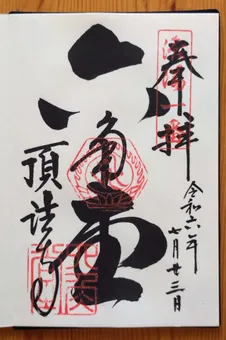 奉拝
令和六年
七月廿三日
六角堂
頂法寺